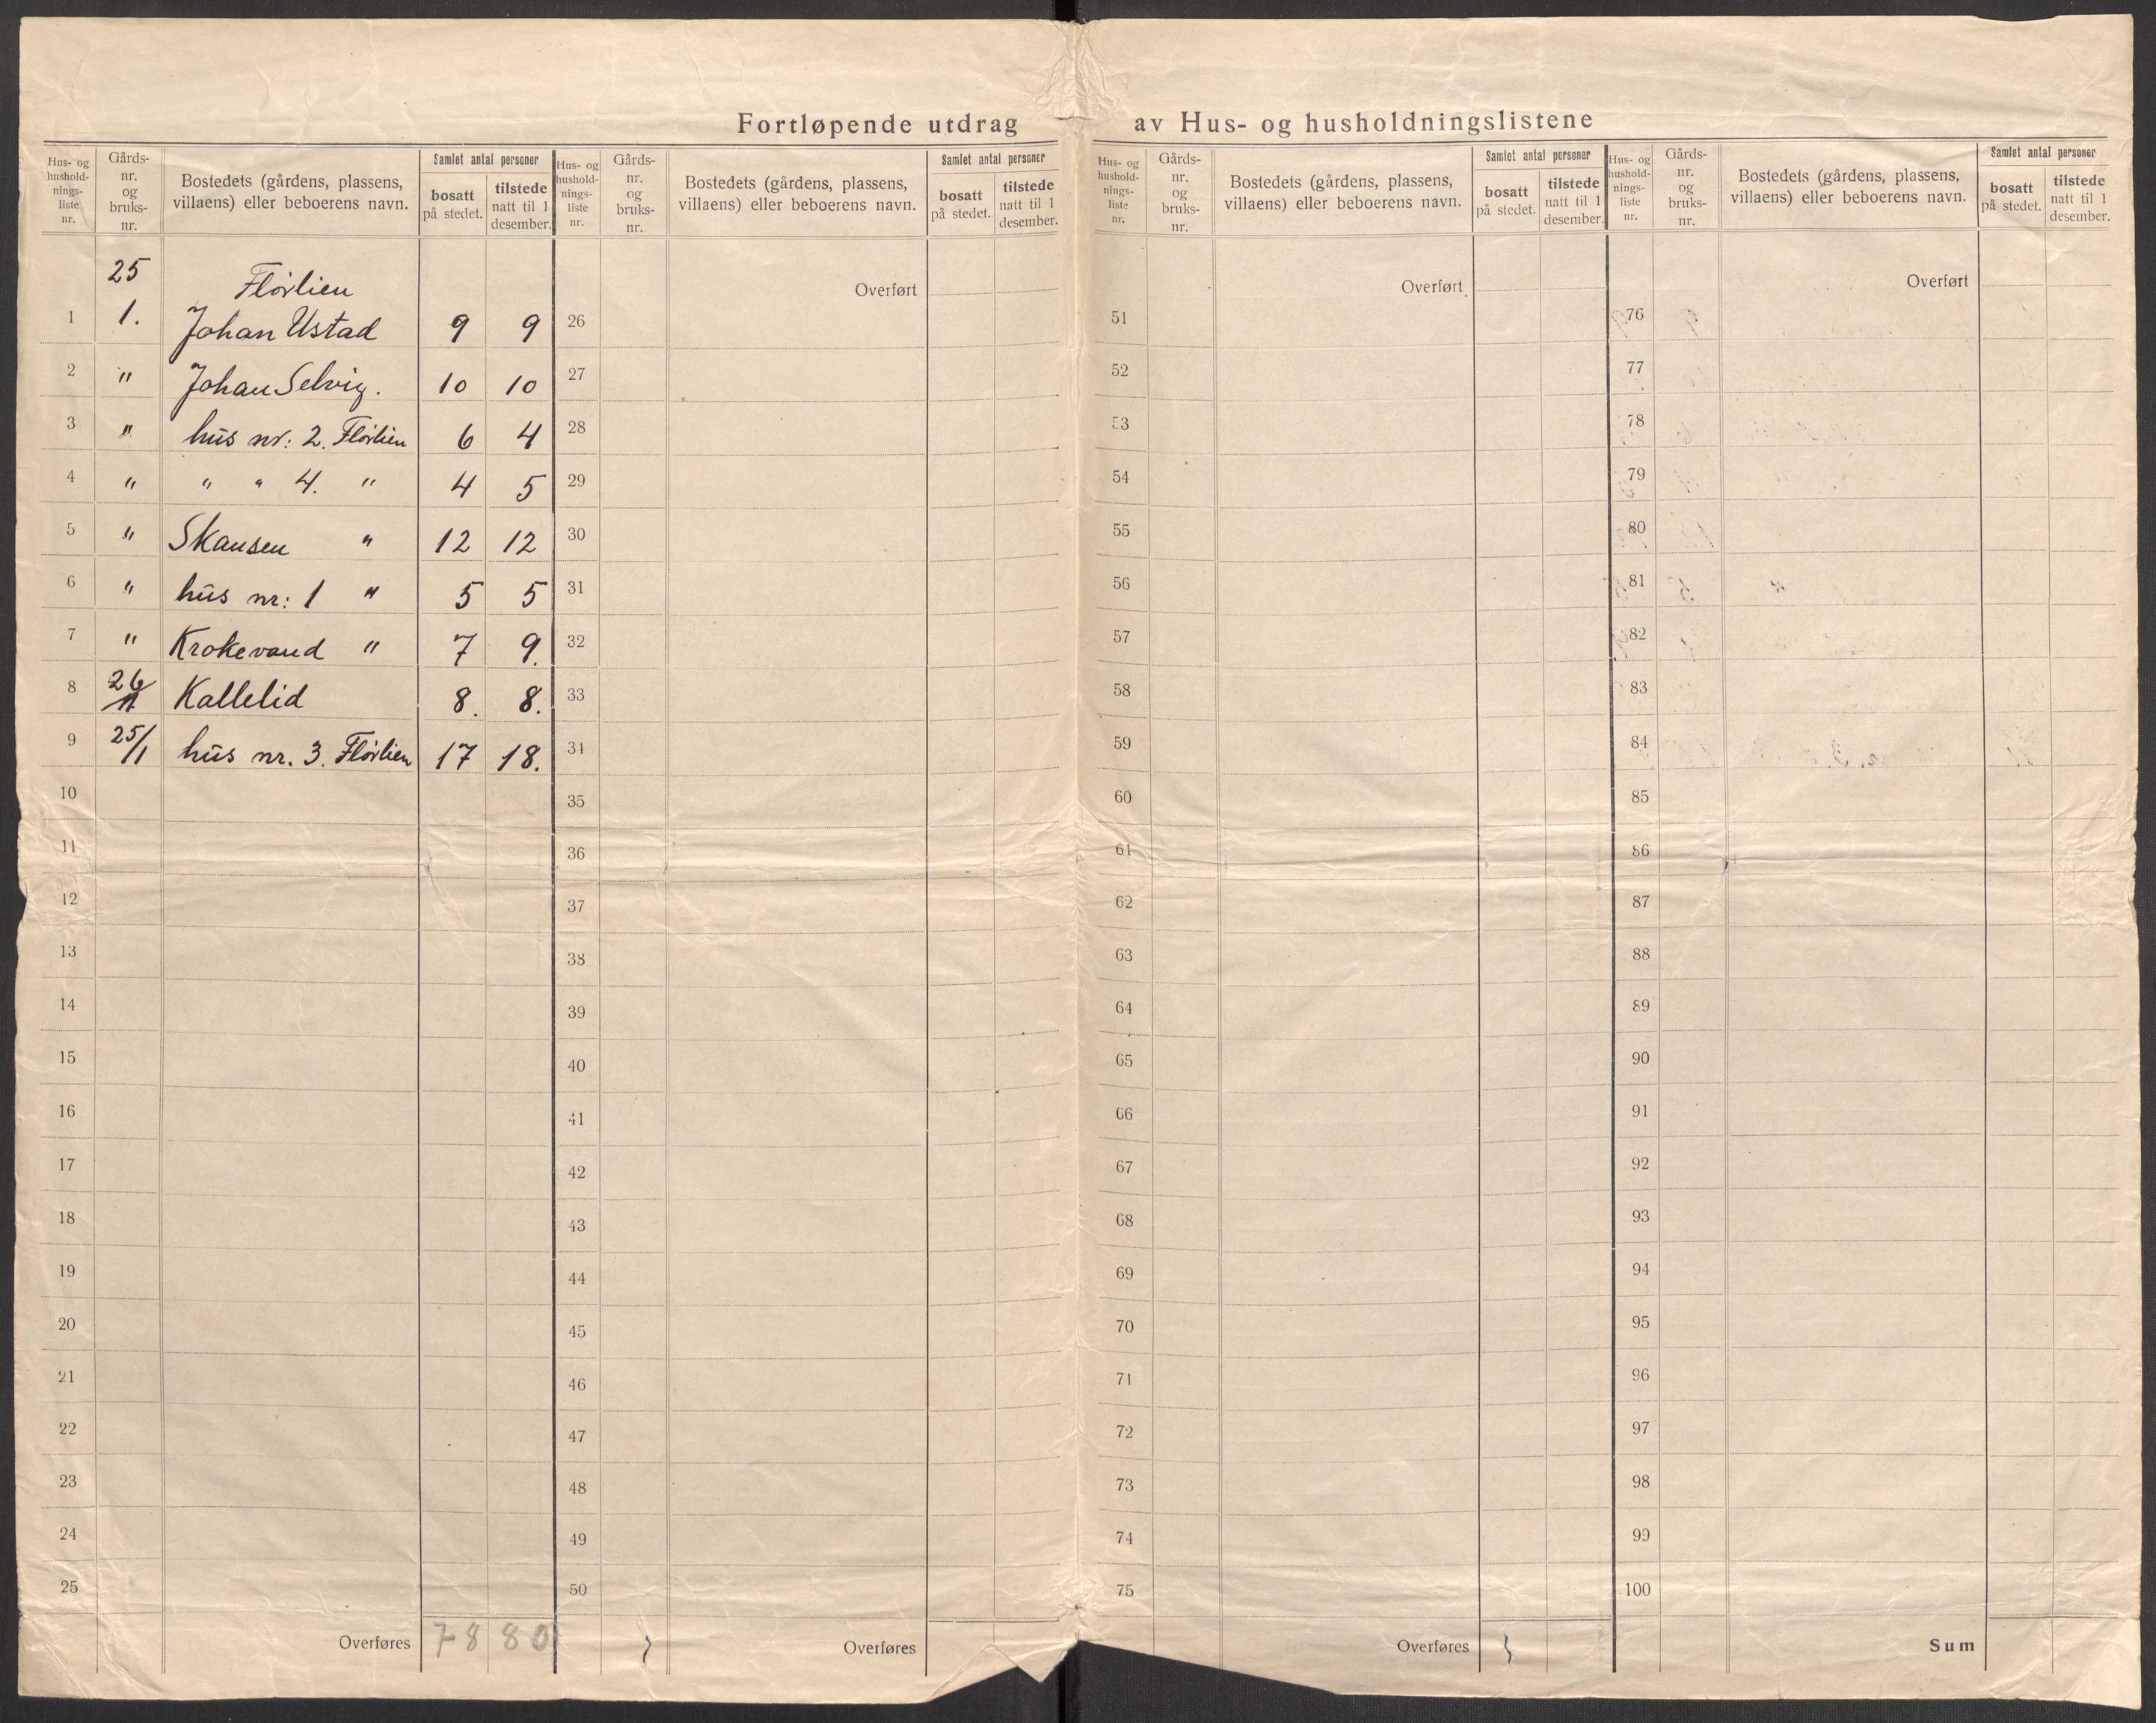 Fortløpende utdrag av Hus- og husholdningslistene
Hus- og hushold-nings-liste nr. Gårds-nr. og bruks-nr. Bostedets (gårdens, plassens, villaens) eller beboerens navn. Samlet antal personer bosatt på stedet. tilstede natt til 1 desember.
Hus- og hushold-nings-liste nr. Gårds-nr. og bruks-nr. Bostedets (gårdens, plassens, villaens) eller beboerens navn. Samlet antal personer bosatt på stedet. tilstede natt til 1 desember.
Hus- og hushold-nings-liste nr. Gårds-nr. og bruks-nr. Bostedets (gårdens, plassens, villaens) eller beboerens navn. Samlet antal personer bosatt på stedet. tilstede natt til 1 desember.
Hus- og hushold-nings-liste nr. Gårds-nr. og bruks-nr. Bostedets (gårdens, plassens, villaens) eller beboerens navn. Samlet antal personer bosatt på stedet. tilstede natt til 1 desember.
25 Flörlien Overført Overført Overført
1 1. Johan Ustad 9 9 26 51 76
2 " Johan Selvig. 10 10 27 52 77
3 " hus nr: 2. Flörlien 6 4 28 53 78
4 " " " 4. " 4 5 29 54 79
5 " Skansen " 12 12 30 55 80
6 " hus nr: 1 " 5 5 31 56 81
7 " Krokevand " 7 9. 32 57 82
8 26 Kallelid 8. 8. 33 58 83
9 25/1 hus nr. 3. Flörlien 17 18. 34 59 84
10 35 60 85
11 36 61 86
12 37 62 87
13 38 63 88
14 39 64 89
15 40 65 90
16 41 66 91
17 42 67 92
18 43 68 93
19 44 69 94
20 45 70 95
21 46 71 96
22 47 72 97
23 48 73 98
24 49 74 99
25 50 75 100
Overføres 78 80 Overføres Overføres Sum